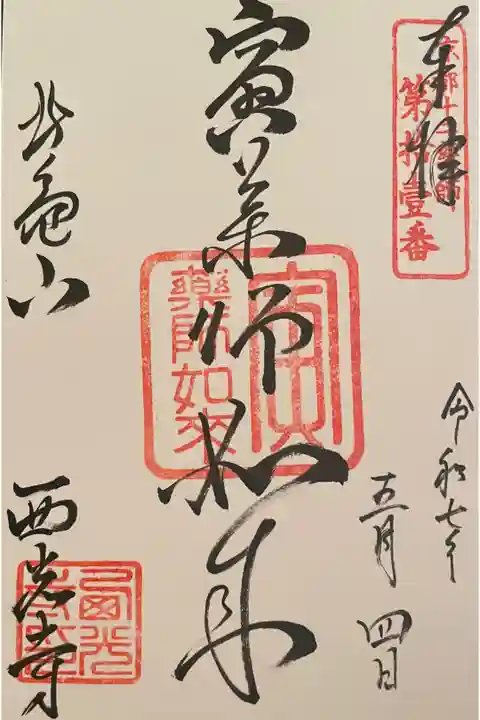 奉拝
京都十二薬師
第拾壹番
令和七年
五月
四日
寅薬師如来
寅
藥師如來
北亀山
西光寺